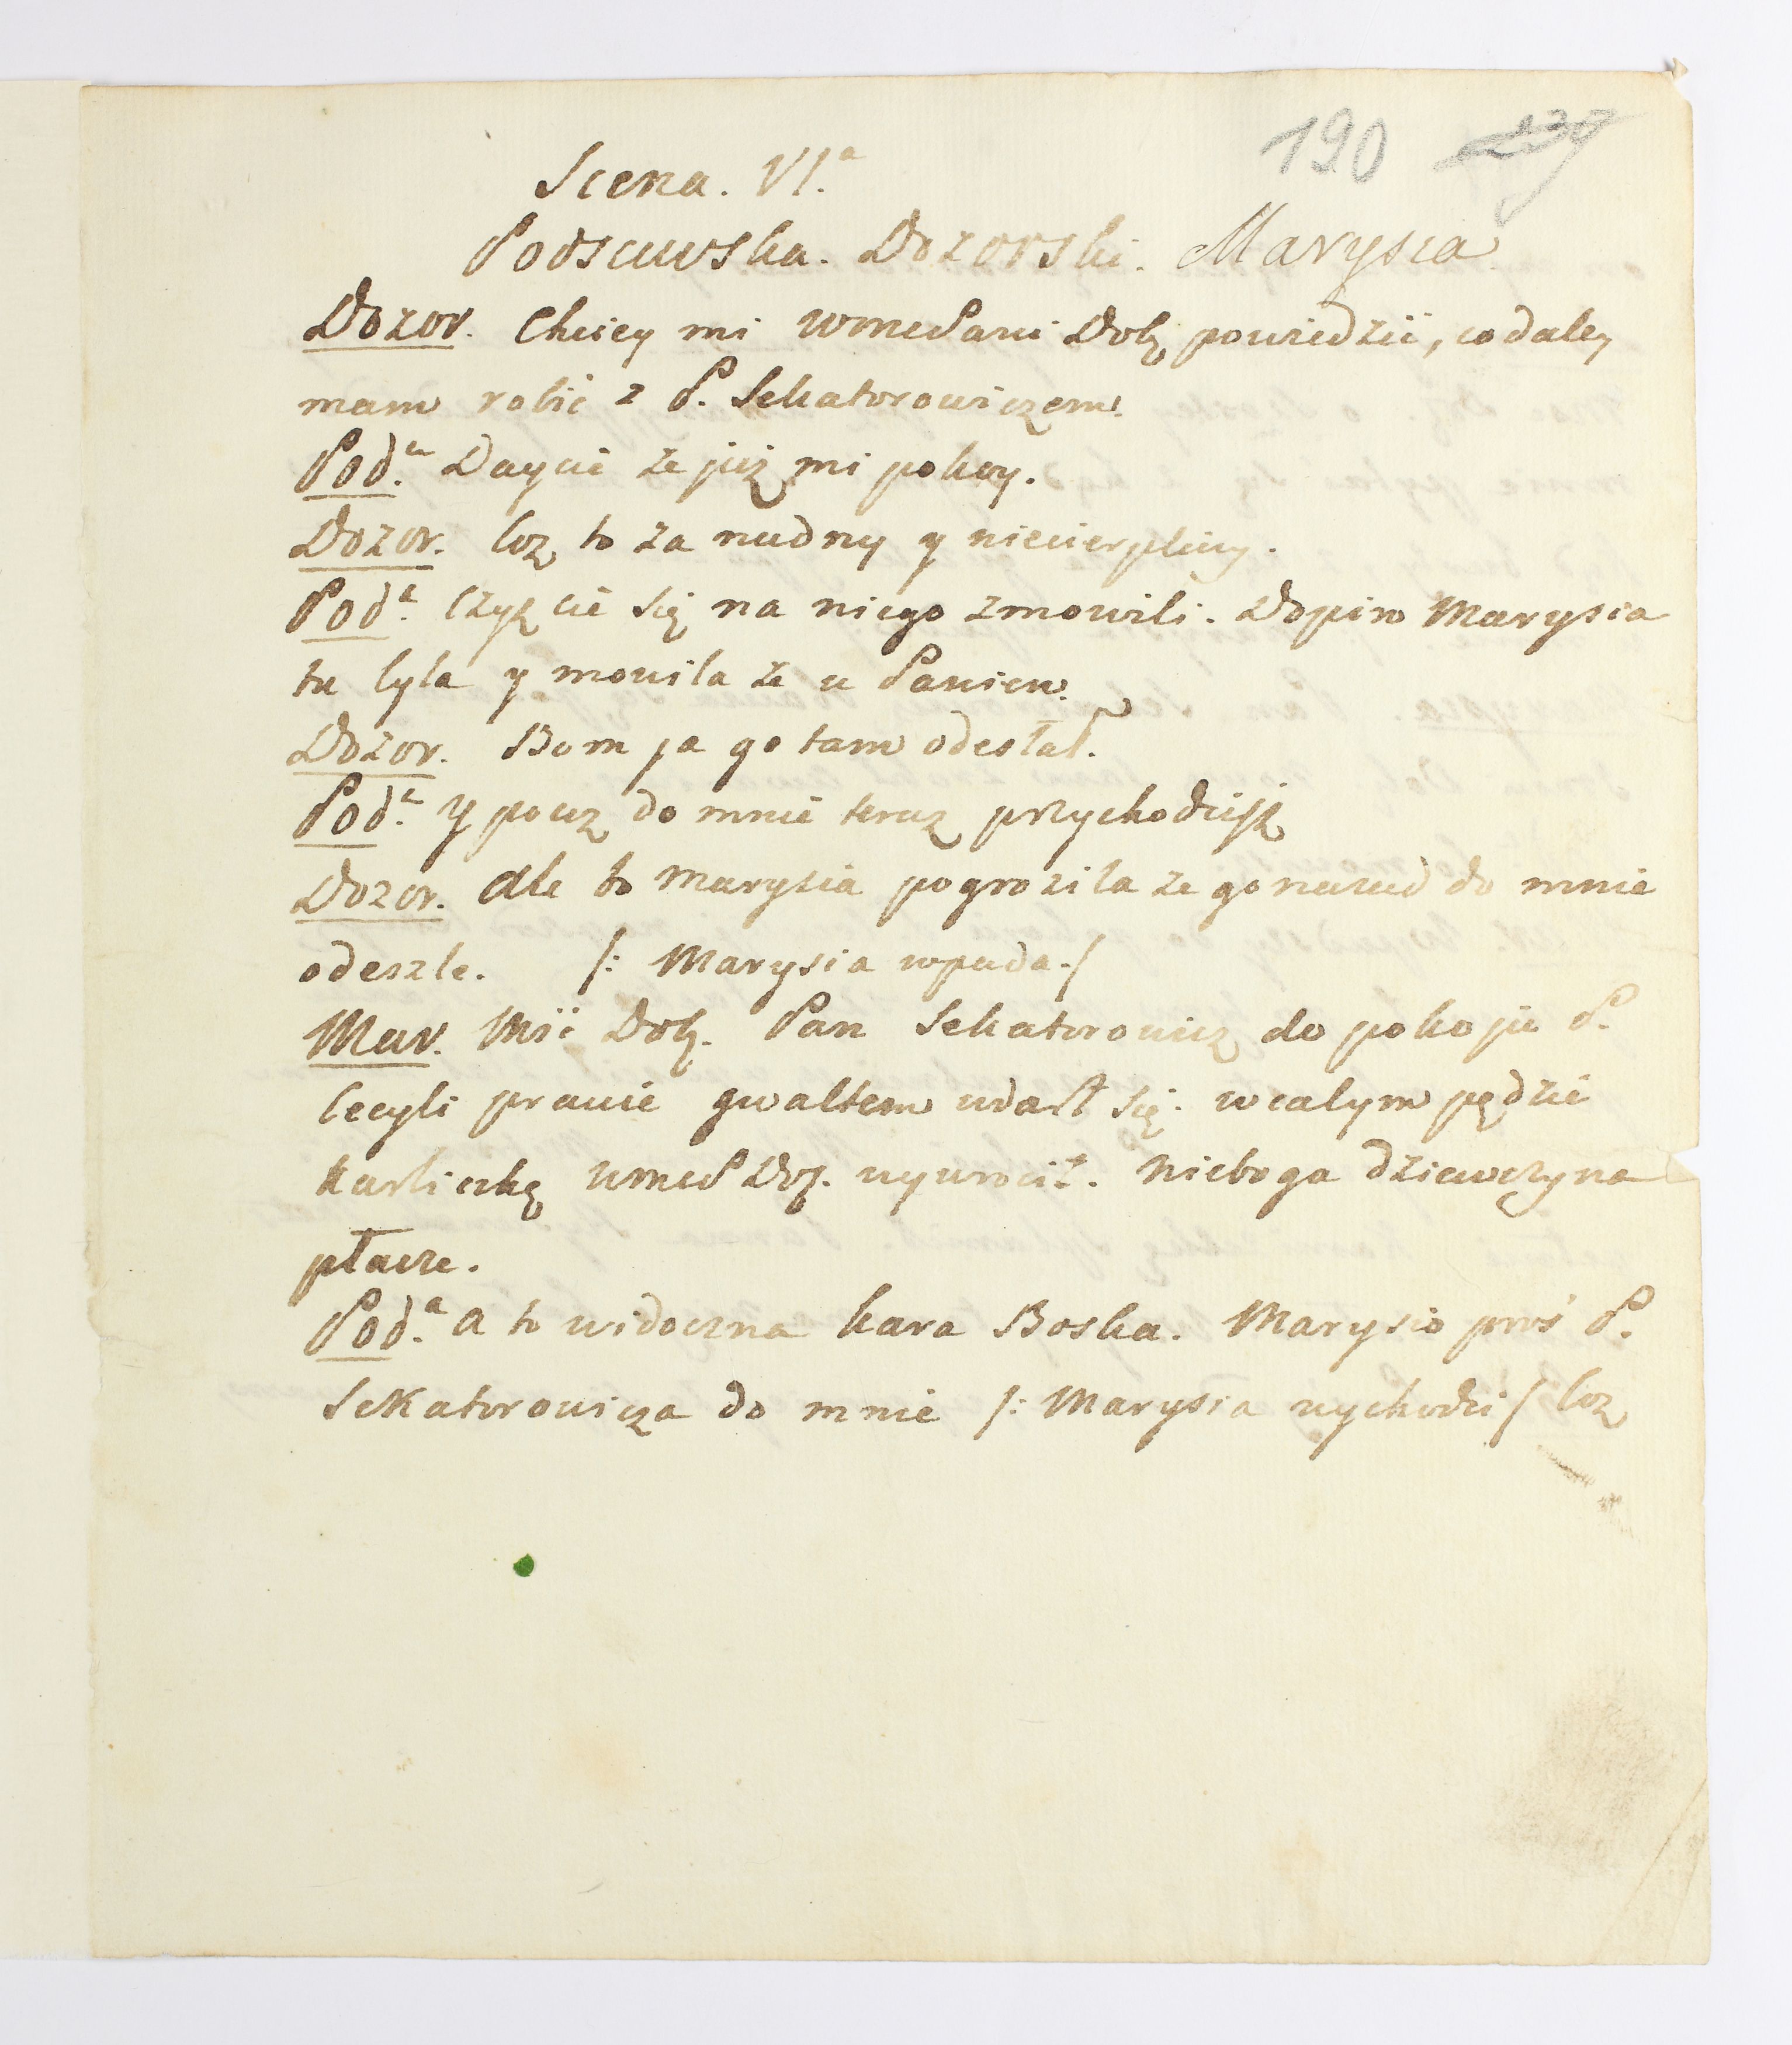 190
Scena. VI.a
Podsuwska. Dozorski. Marysia
Dozor. Chciey mi WmcPani Dob powiedzić, co daley
mam robić z P. Sekatorowiczem.
Pod.a Daycie że już mi pokoy.
Dozor. Coz to za nudny y niecierpliwy.
Pod.a Czyżcie się na niego zmowili. Dopiro Marysia
tu byla y mowila że u Panien.
Dozor. Bom ja go tam odesłał.
Pod.a Y pocuż do mnie teraz przychodzisz
Dozor. Ale to Marysia pogrozila ze go nazad do mnie
odeszle. /: Marysia wpada./
Mar. Mći Dob. Pan Sekatorowicz do pokoju P.
Cecyli prawie gwaltem udarł się. w calym pędzie
Karliczkę WmcP Do. wywrocił. Nieboga dziewczyna
płacze.
Pod.a A to widoczna kara Boska. Marysio proś P.
Sekatorowicza do mnie /: Marysia wychodzi/ Coz